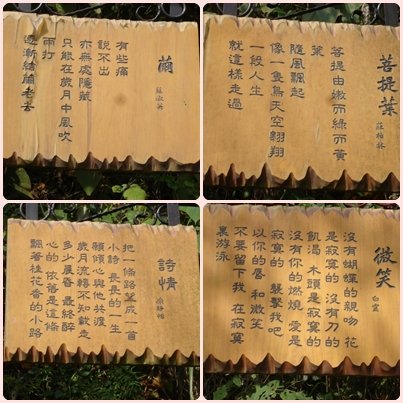 繭
有些痛
說不出
亦無處隱藏
只能在歲月中風吹
雨打
逐漸結繭老去
菩提葉
莊柏林
菩提由嫩而綠而黃
葉
隨風飄起
像一隻鳥天空翱翔
一段人生
就這樣走過
詩情
涂靜怡
把一條路築成一首
小詩 長長的一生
願傾心與他共渡
歲月流轉不知載走
多少屐香 最終醉
心的 依舊是這條
飄著桂花香的小路
微笑
沒有蝴蝶的親吻 花
是寂寞的 沒有刀的
飢渴 木頭是寂寞的
沒有你的燃燒 愛是
寂寞的 襲擊我吧
以你的唇 和微笑
不要留下我 在寂寞
裏游泳